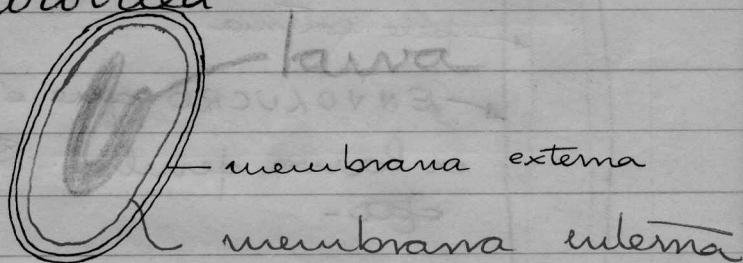 larva
membrana externa
membrana interna